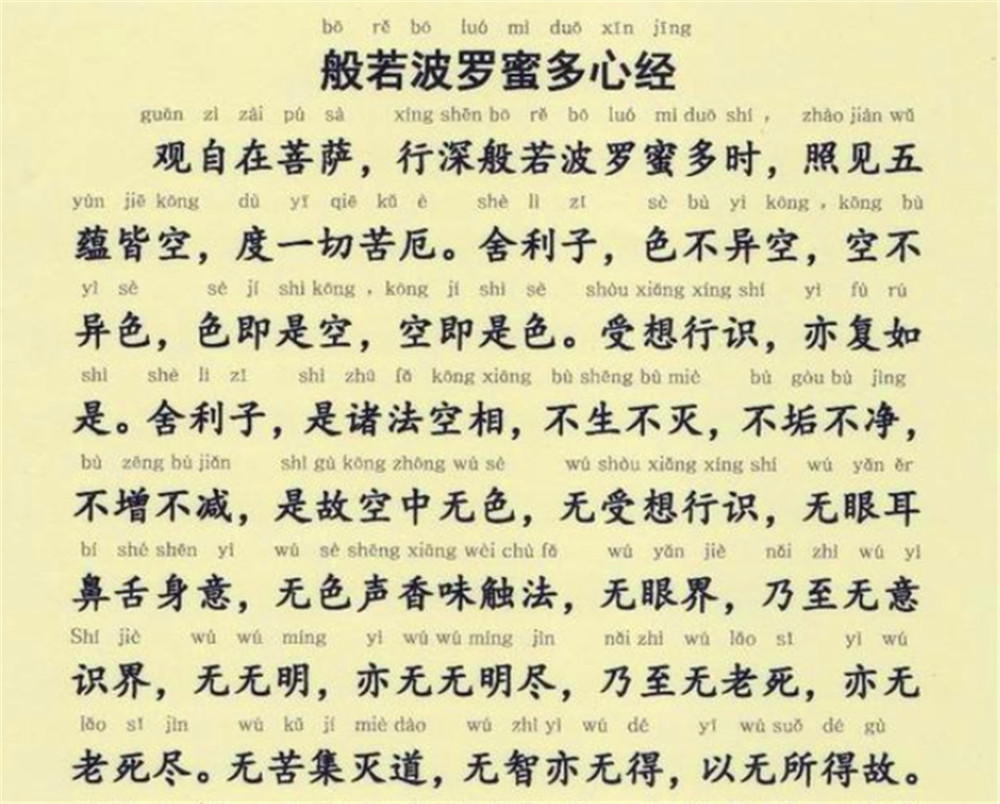 bō rě bō luó mì duō xīn jīng
般若波罗蜜多心经
guān zì zài pú sà xíng shēn bō rě bō luó mì duō shí , zhào jiàn wǔ
观自在菩萨，行深般若波罗蜜多时，照见五
yùn jiē kōng dù yī qiē kǔ è shè lì zǐ sè bù yì kōng , kōng bù
蕴皆空，度一切苦厄。舍利子，色不异空，空不
yì sè sè jí shì kōng , kōng jí shì sè shòu xiǎng xíng shí yì fù rú
异色，色即是空，空即是色。受想行识，亦复如
shì shè lì zǐ shì zhū fǎ kōng xiāng bù shēng bù miè bù gòu bù jìng
是。舍利子，是诸法空相，不生不灭，不垢不净，
bù zēng bù jiǎn shì gù kōng zhōng wú sè wú shòu xiǎng xíng shí wú yǎn ěr
不增不减，是故空中无色，无受想行识，无眼耳
bí shé shēn yì wú sè shēng xiāng wèi chù fǎ wú yǎn jiè nǎi zhì wú yì
鼻舌身意，无色声香味触法，无眼界，乃至无意
Shí jiè wú wú míng yì wú wú míng jìn nǎi zhì wú lǎo sǐ yì wú
识界，无无明，亦无无明尽，乃至无老死，亦无
lǎo sǐ jìn wú kǔ jí miè dào wú zhì yì wú dé yǐ wú suǒ dé gù
老死尽。无苦集灭道，无智亦无得，以无所得故。